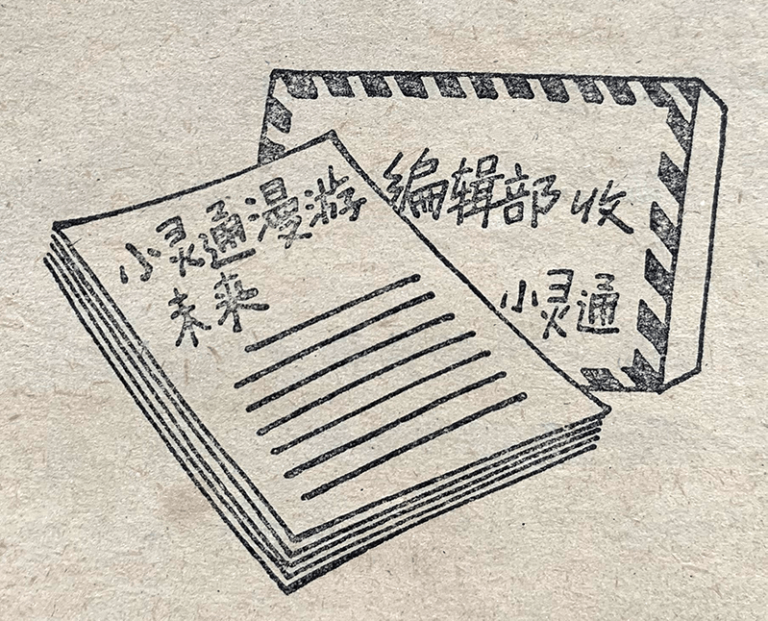 小灵通漫游
未来
编辑部 收
小灵通